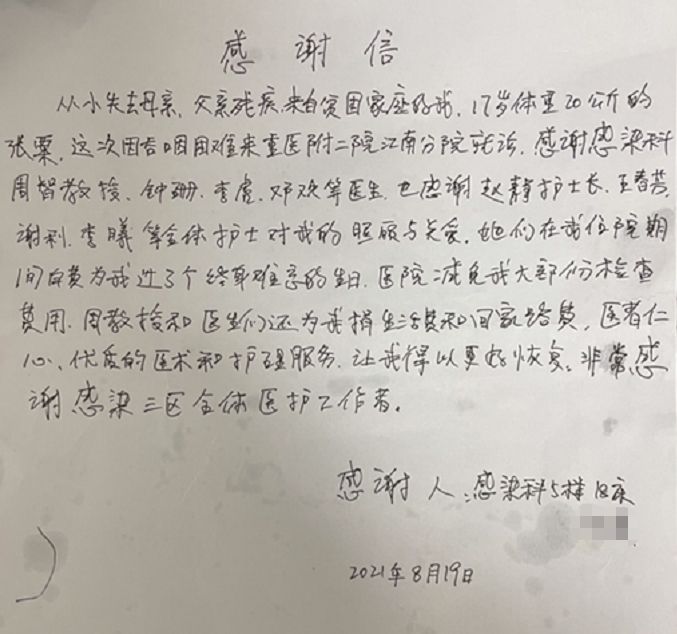 感谢信
从小失去母亲，父亲残疾，来自贫困家庭的我，17岁体重20公斤的
张粟，这次因吞咽困难来重医附二院江南分院就诊，感谢感染科
周智教授、钟珊、李虎、邓欢等医生，也感谢赵静护士长、王春芳、
谢利、李曦等全体护士对我的照顾与关爱，她们在我住院期
间自费为我过了个终身难忘的生日，医院减免我大部份检查
费用，周教授和医生们还为我捐生活费和回家路费，医者仁
心，优质的医术和护理服务，让我得以更好恢复。非常感
谢感染三区全体医护工作者。
感谢人：感染科5楼18床
2021年8月19日